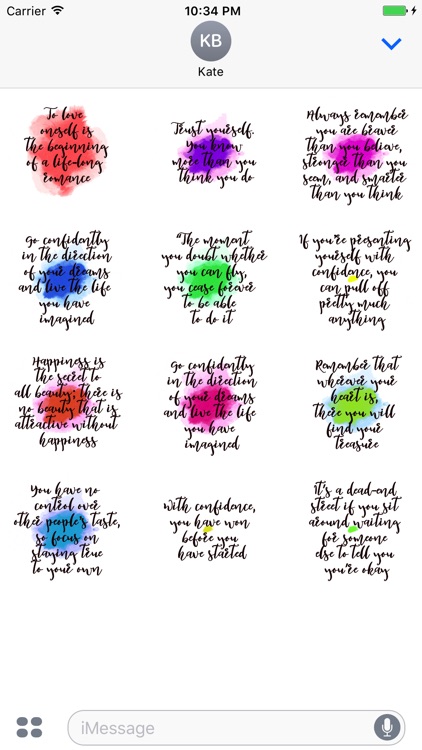 Carrier 10:34 PM
KB
Kate
To love
oneself is
the beginning
of a life-long
romance
Trust yourself.
You know
more than you
think you do
Always remember
you are braver
than you believe,
stronger than you
seem, and smarter
than you think
Go confidently
in the direction
of your dreams
and live the life
you have
imagined
"The moment
you doubt whether
you can fly,
you cease forever
to be able
to do it
If you're presenting
yourself with
confidence, you
can pull off
pretty much
anything
Happiness is
the secret to
all beauty; there is
no beauty that is
attractive without
happiness
Go confidently
in the direction
of your dreams
and live the life
you have
imagined
Remember that
wherever your
heart is,
there you will
find your
treasure
You have no
control over
other people's taste,
so focus on
staying true
to your own
With confidence,
you have won
before you
have started
It's a dead-end
street if you sit
around waiting
for someone
else to tell you
you're okay
iMessage